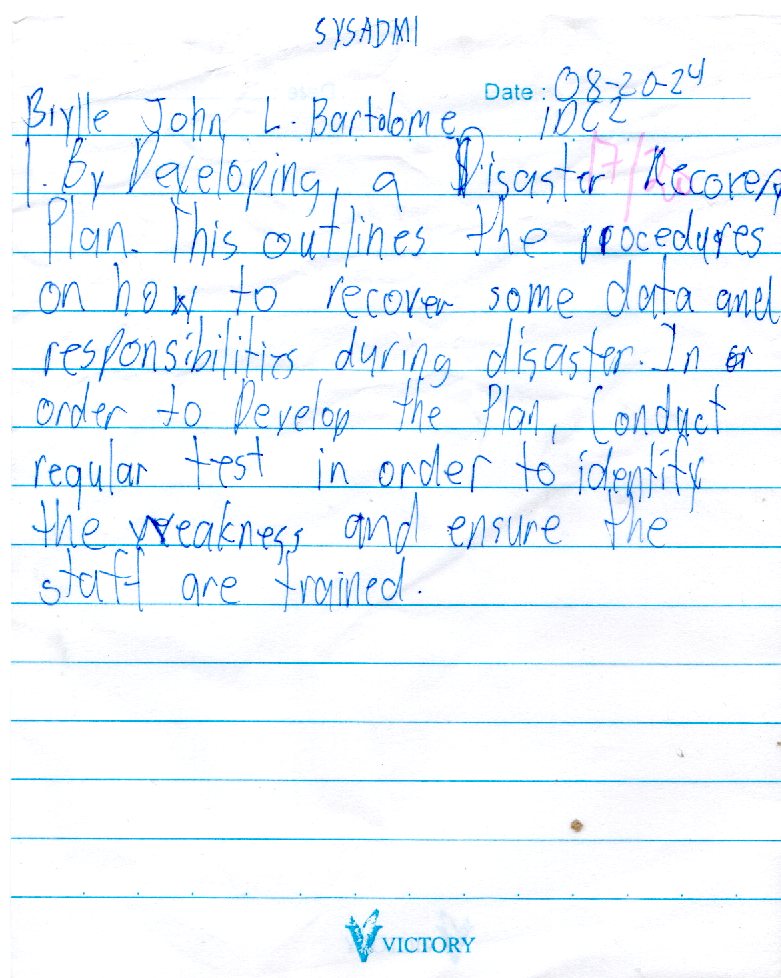 SYSADM1
Date : 08-20-24
Brylle John L. Bartolome IDC2
1. By Developing, a Disaster Recovery
Plan. This outlines the procedures
on how to recover some data and
responsibilities during disaster. In
order to Develop the Plan, Conduct
regular test in order to identify
the weakness and ensure the
staff are trained.
VICTORY